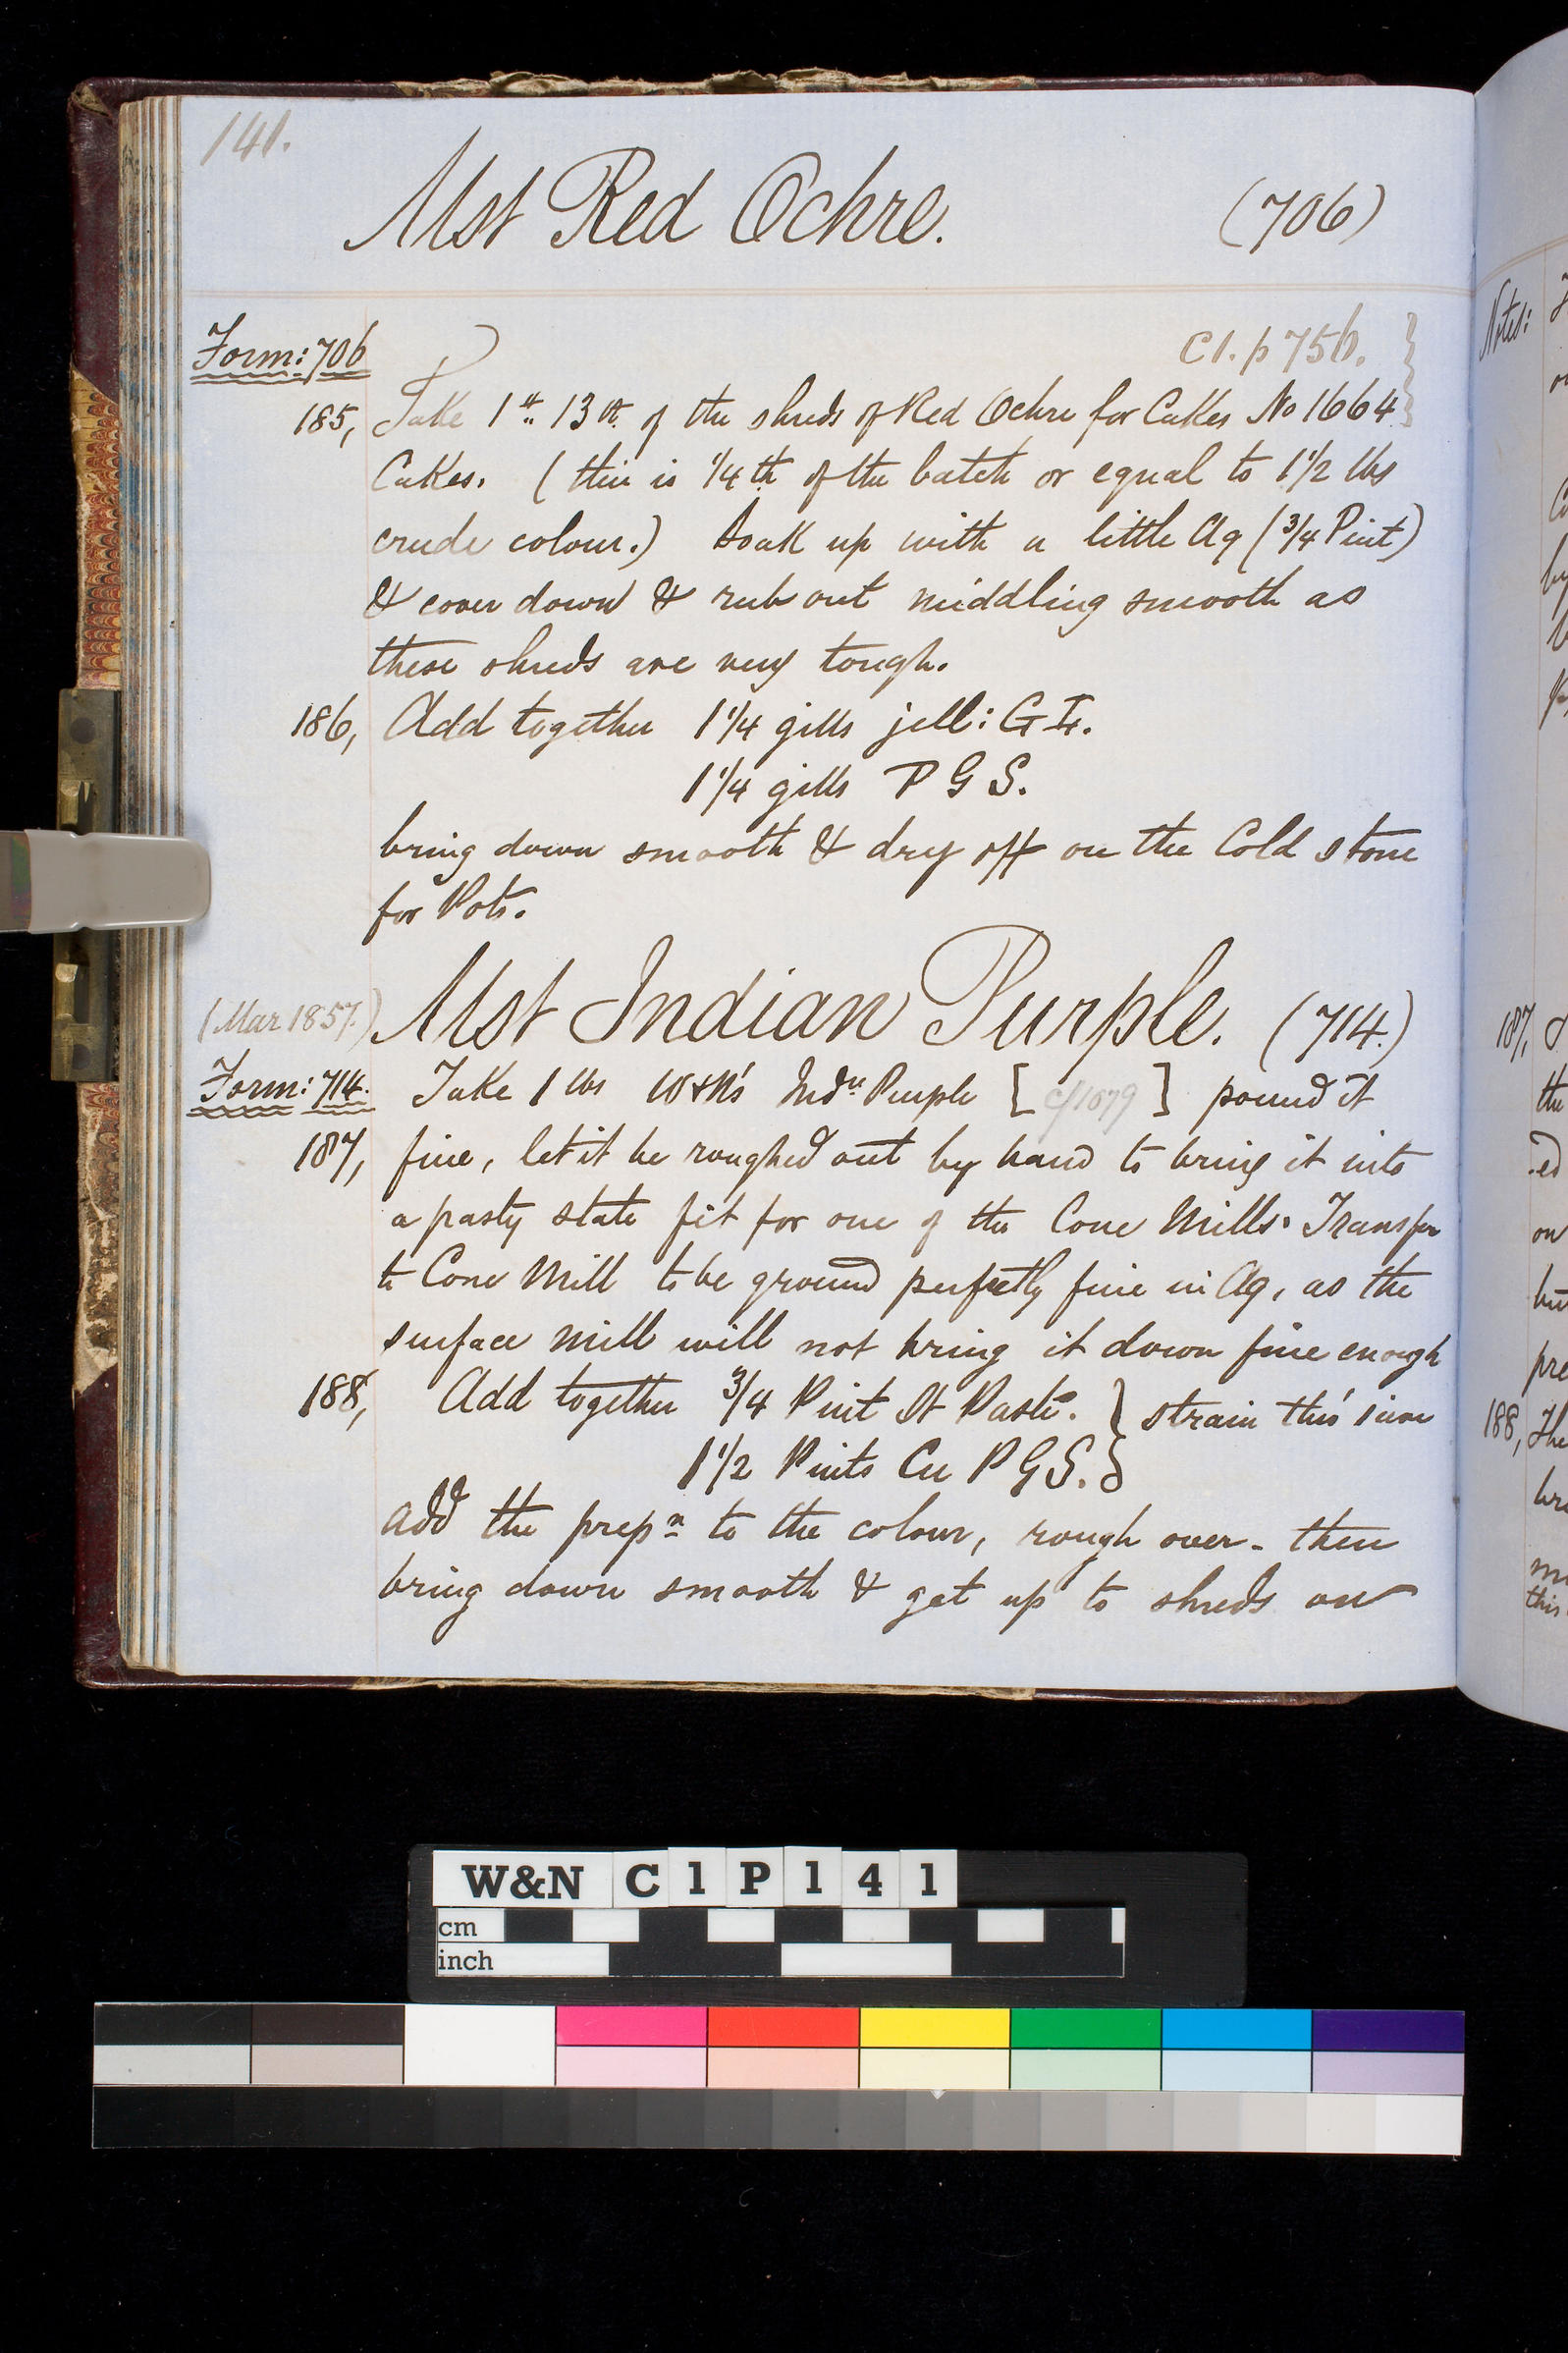 141.
Mst Red Ochre. (706)
Form: 706
C1. p 756. }
185, Take 1 lb.. 13 oz. of the shreds of Red Ochre for Cakes No 1664
Cakes. (this is 1/4th of the batch or equal to 1 1/2 lbs
crude colour.) Soak up with a little Aq (3/4 Pint)
& cover down & rub out middling smooth as
these shreds are very tough.
186, Add together 1 1/4 gills jell: G
1 1/4 gills P G S.
bring down smooth & dry off on the Cold stone
for Pots.
(Mar 1857.) Mst Indian Purple. (714.)
Form: 714. Take 1 lbs W&N's Indn Purple [cf 1079] pound it
187, fine, let it be roughed out by hand to bring it into
a pasty state fit for one of the Cone Mills. Transfer
to Cone Mill to be ground perfectly fine in Aq, as the
surface mill will not bring it down fine enough
188, Add together 3/4 Pint St Paste. } strain this
1 1/2 Pints Cu P G S. }
add the prepn to the colour, rough over - then
bring down smooth & get up to shreds on
Notes:
187,
the
188, The
this
W&N C1P141
cm
inch